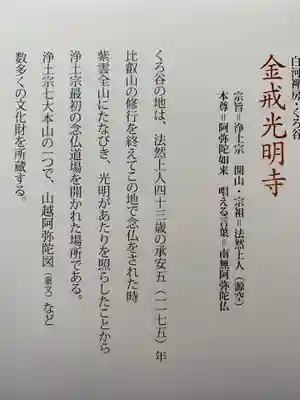 白河禅房・くろ谷
金戒光明寺
宗旨＝浄土宗　開山・宗祖＝法然上人（源空）
本尊＝阿弥陀如来　唱える言葉＝南無阿弥陀仏
くろ谷の地は、法然上人四十三歳の承安五（一一七五）年
比叡山の修行を終えてこの地で念仏をされた時
紫雲全山にたなびき、光明があたりを照らしたことから
浄土宗最初の念仏道場を開かれた場所である。
浄土宗七大本山の一つで、山越阿弥陀図（重文）など
数多くの文化財を所蔵する。